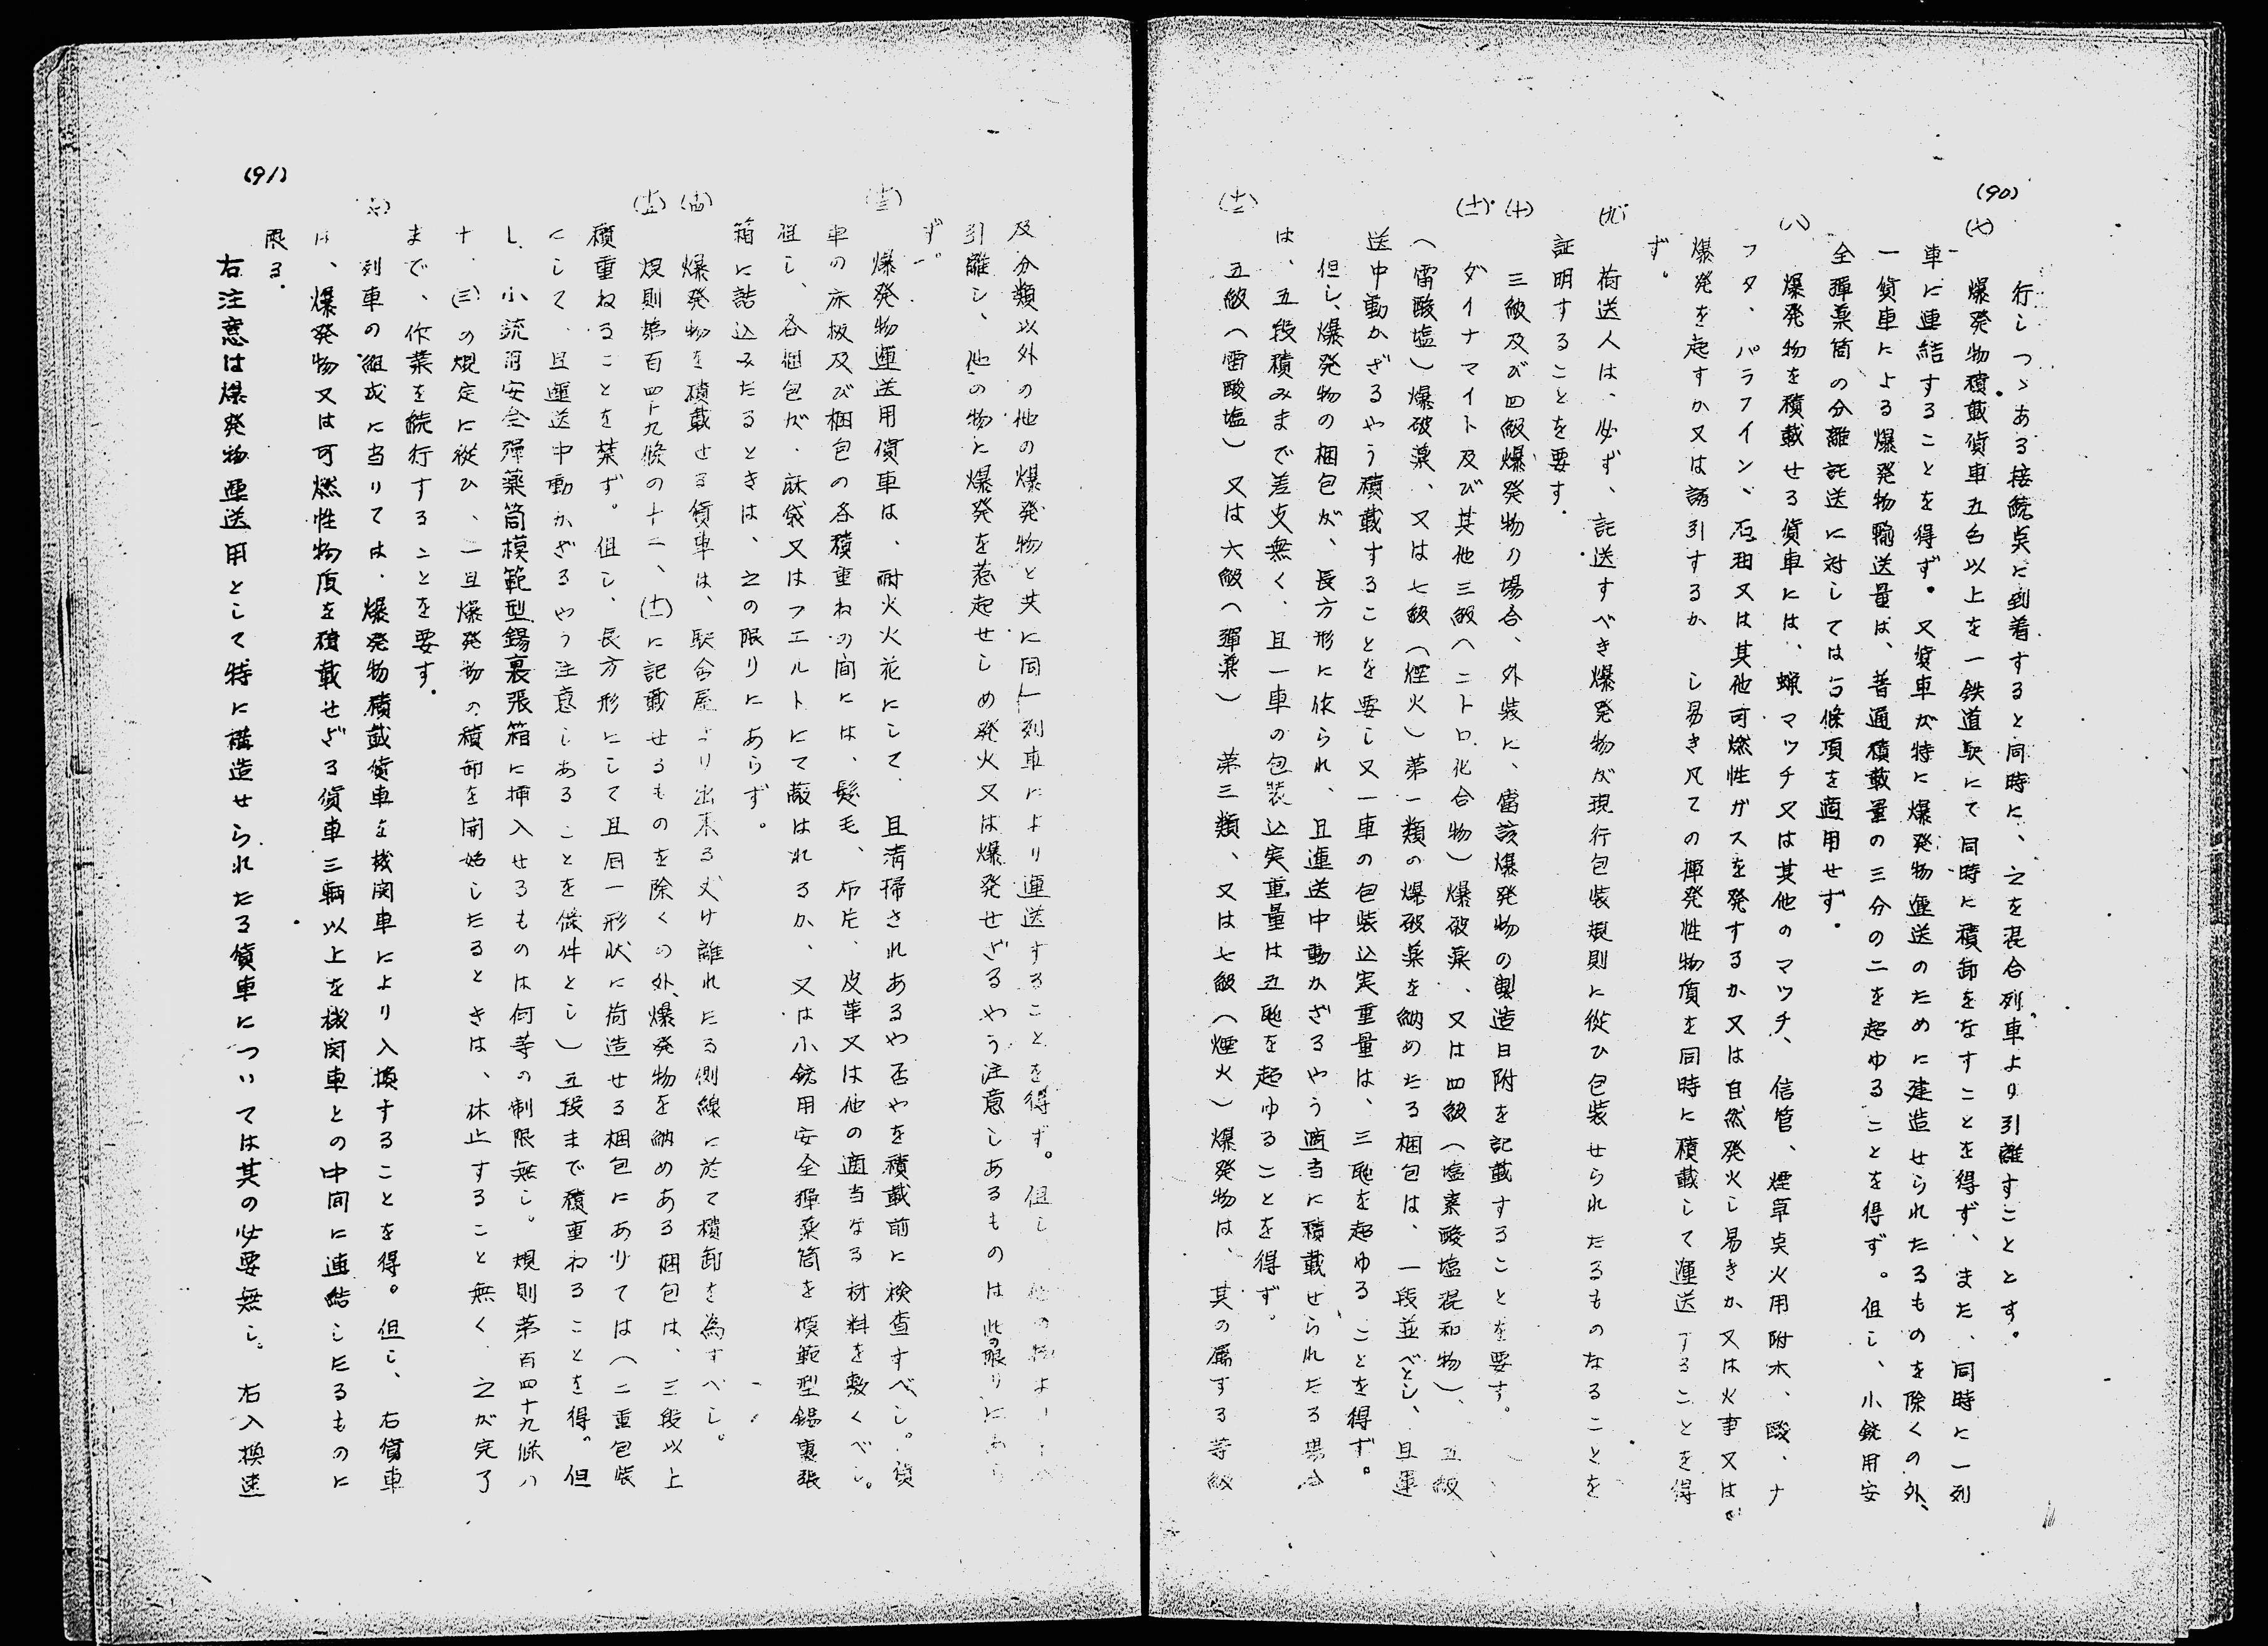 (90)
行しつゝある接続点に到着すると同時に、之を混合列車より引離すこととす。
(七) 爆発物積載貨車五台以上を一鉄道駅にて同時に積卸をなすことを得ず、また、同時に一列
車に連結することを得ず。又貨車が特に爆発物運送のために建造せられたるものを除くの外、
一貨車による爆発物輸送量は、普通積載量の三分の二を超ゆることを得ず。但し、小銃用安
全弾薬筒の分離託送に対しては右條項を適用せず。
(八) 爆発物を積載せる貨車には、蝋マッチ又は其他のマッチ、信管、煙草点火用附木、酸、ナ
フタ、パラフイン、石油又は其他可燃性ガスを発するか又は自然発火し易きか、又は火事又は
爆発を起すか又は誘引するか し易き凡ての揮発性物質を同時に積載して運送することを得
ず。
(九) 荷送人は、必ず、託送すべき爆発物が現行包装規則に従ひ包装せられたるものなることを
証明することを要す.
(十) 三級及び四級爆発物の場合、外装に、當該爆発物の製造日附を記載することを要す。
(十一) ダイナマイト及び其他三級(ニトロ化合物)爆破薬、又は四級(塩素酸塩混和物)、五級
(雷酸塩)爆破薬、又は七級(煙火)第一類の爆破薬を納めたる梱包は、一段並べとし、且運
送中動かざるやう積載することを要し又一車の包装込実重量は、三瓲を超ゆることを得ず。
但し、爆発物の梱包が、長方形に作られ、且運送中動かざるやう適当に積載せられたる場合
は、五段積みまで差支無く、且一車の包装込実重量は五瓲を超ゆることを得ず。
(十二) 五級(雷酸塩)又は六級(彈薬) 第三類、又は七級(煙火)爆発物は、其の属する等級
(91)
及分類以外の他の爆発物と共に同一列車により運送することを得ず。但し 他の物より
引離し、他の物に爆発を惹起せしめ発火又は爆発せざるやう注意しあるものは此の限りにあら
ず。
(十三) 爆発物運送用貨車は、耐火火花にして、且清掃されあるや否やを積載前に検査すべし。貨
車の床板及び梱包の各積重ねの間には、髪毛、布片、皮革又は他の適当なる材料を敷くべし。
但し、各梱包が、麻袋又はフエルトにて蔽はれるか、又は小銃用安全彈薬筒を模範型錫裏張
箱に詰込みたるときは、之の限りにあらず。
(十四) 爆発物を積載せる貨車は、駅舎屋より出来る丈け離れたる側線に於て積卸を為すべし。
(十五) 規則第百四十九條の十二、(十一)に記載せるものを除くの外、爆発物を納めある梱包は、三段以上
積重ねることを禁ず。但し、長方形にして且同一形状に荷造せる梱包にありては(二重包装
にして、且運送中動かざるやう注意しあることを條件とし)五段まで積重ねることを得。但
し 小銃用安全彈薬筒模範型錫裏張箱に挿入せるものは何等の制限無し。規則第百四十九條ハ
十、(三)の規定に従ひ、一旦爆発物の積卸を開始したるときは、休止すること無く、之が完了
まで、作業を続行することを要す.
列車の組成に当りては、爆発物積載貨車を機関車により入換することを得。但し、右貨車
は、爆発物又は可燃性物質を積載せざる貨車三輛以上を機関車との中間に連結したるものに
限る.
右注意は爆発物運送用として特に構造せられたる貨車については其の必要無し。右入換速